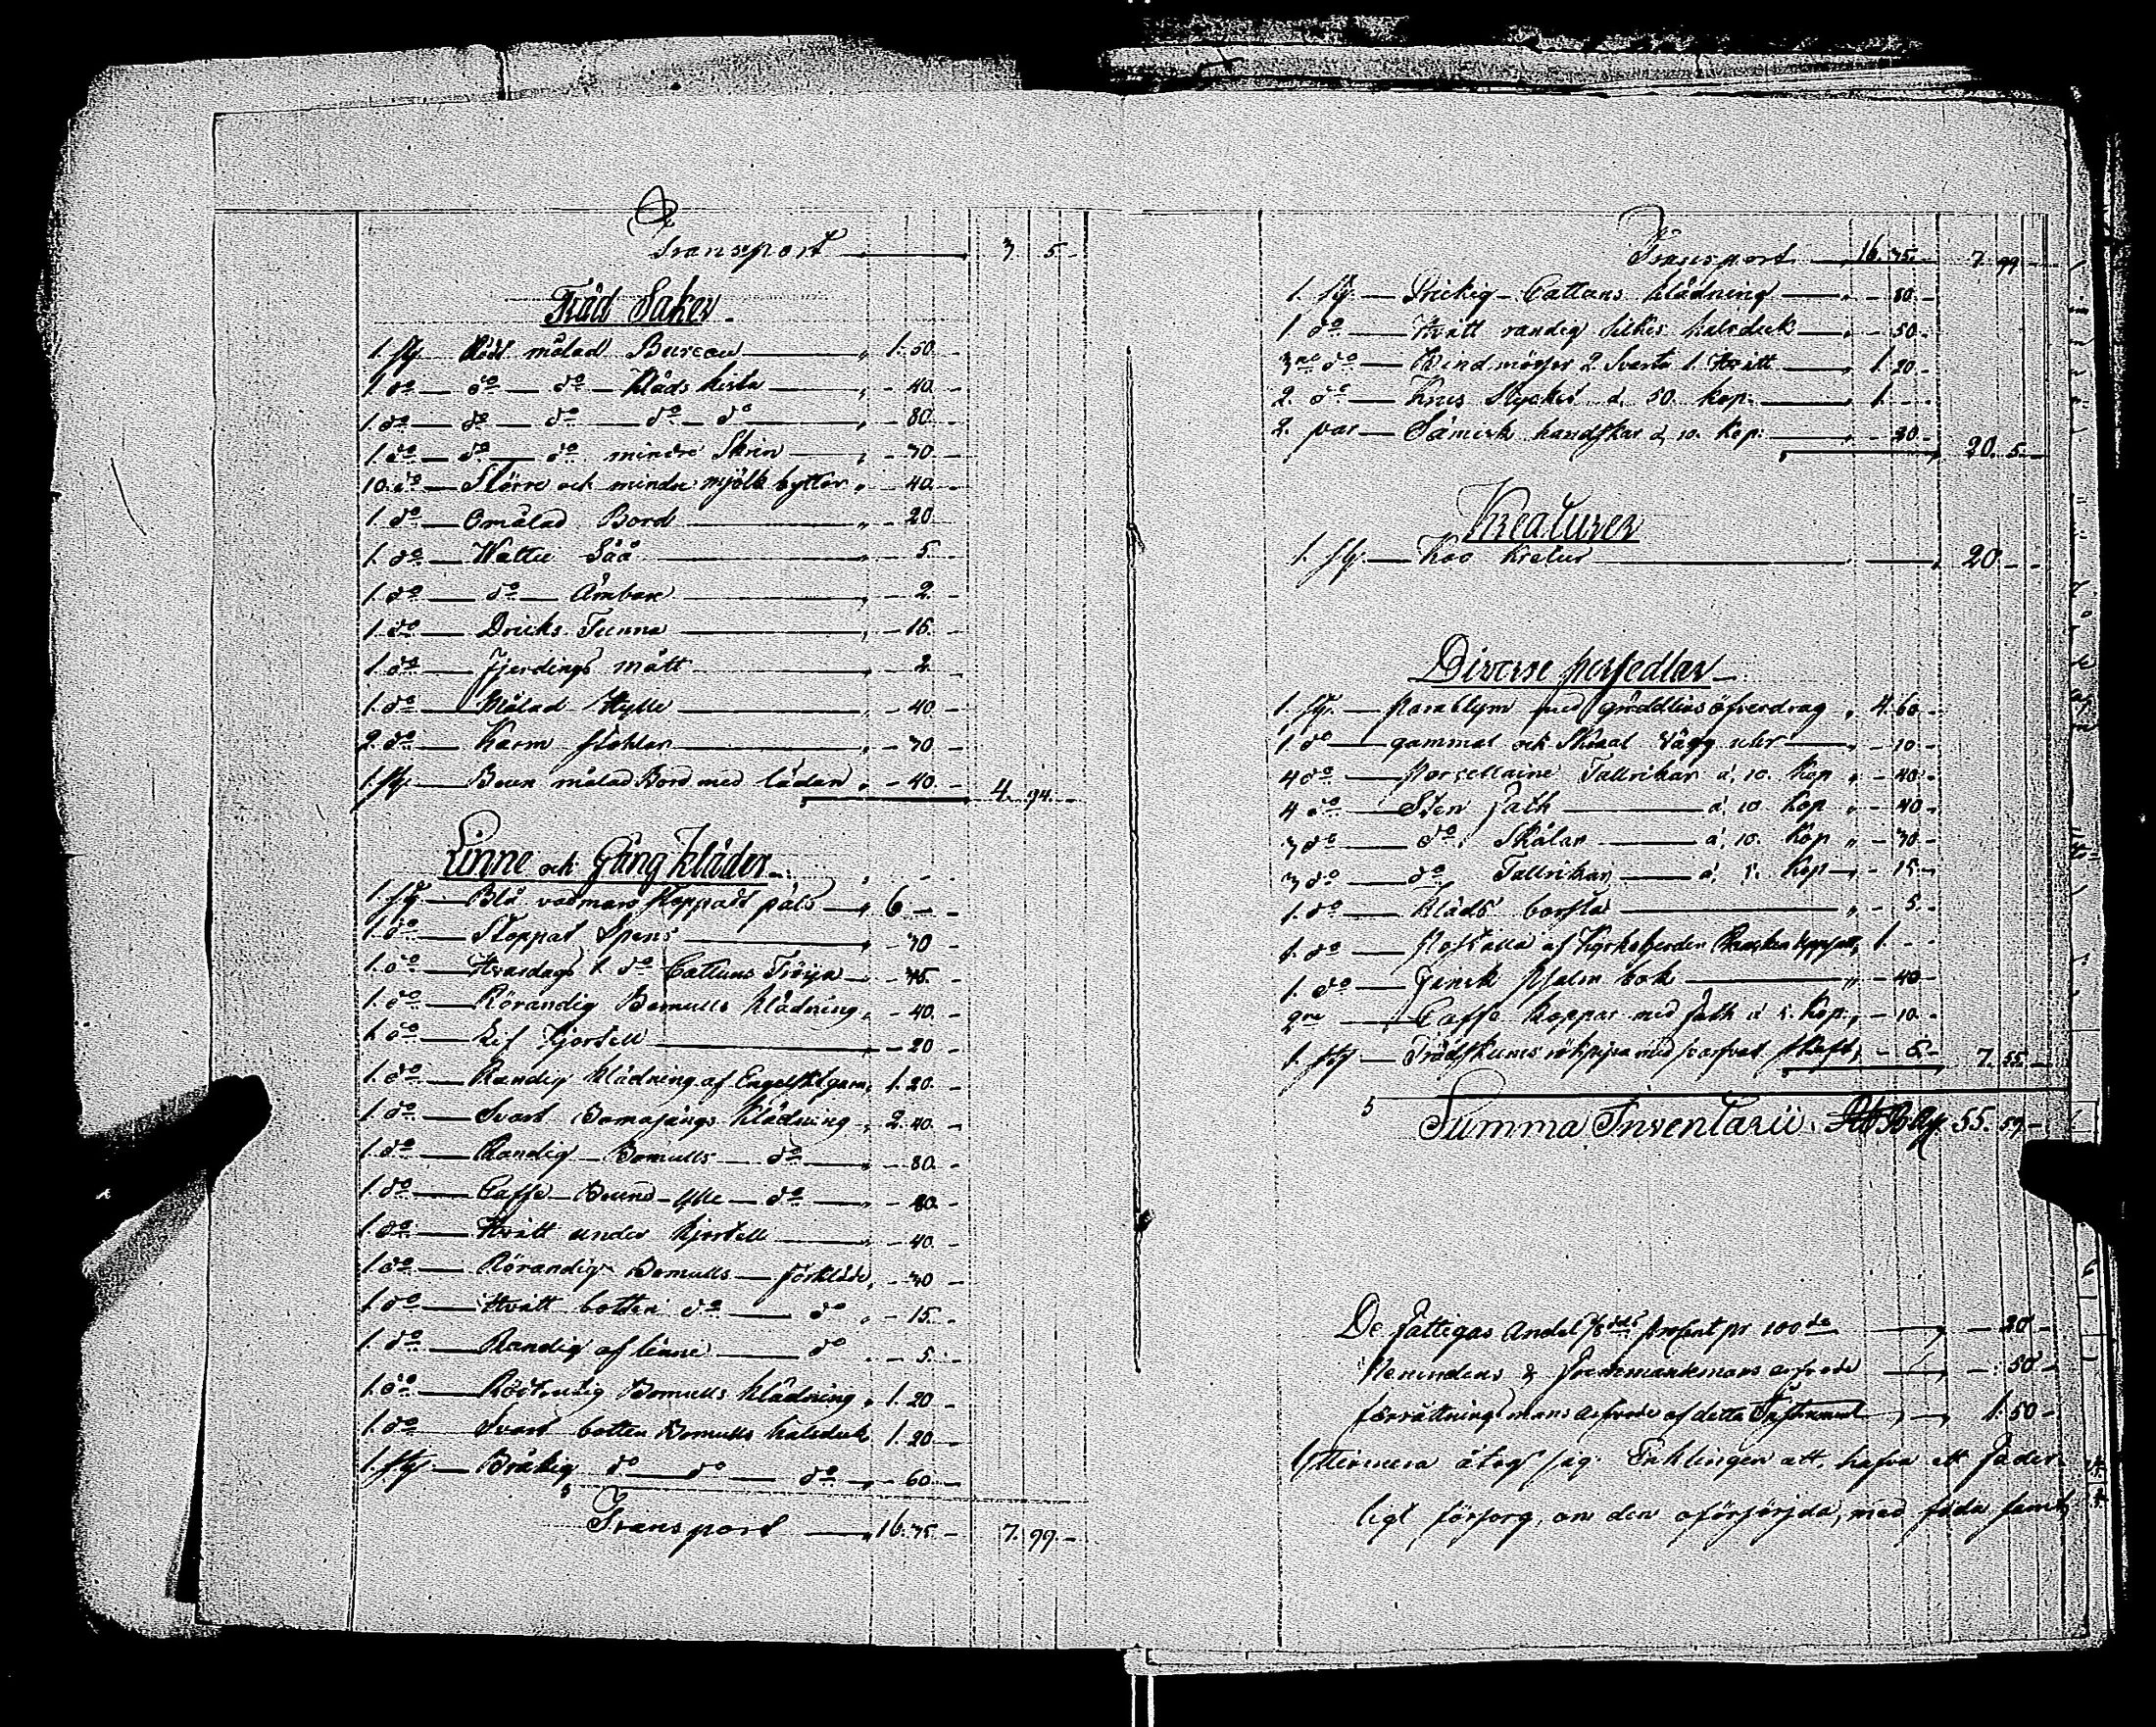 Transport 3. 5
Träd Saker
1. sty. Rödt målad Bureau 1. 50.
1. do do do Kläds kista 40.
1. do do do do do 80.
1. do do do mindre Skrin 70
10. do Större och mindre mjölk byttor 40.
1. do Omålad Bord 20
1. do Wattu Såå 5.
1. do do Ämbare 2.
1. do Dricks Tunna 15.
1. do Fjerdings mått 2
1. do Målad Hylle 40
2. do Karm stohlar 70
1. sty Brun målad Bord med lådan 40. 4. 94.
Linne och Gång kläder
1. sty Blå vadmars Kappatt päls 6
1. do Stoppat Spens 70
1. do Hvardags 1. do Cattuns Tröija 75.
1. do Rörandig Bomulls klädning 40.
1. do Lif Kjortell 20
1. do Randig klädning af Engelskt garn 1. 20.
1. do Svart Bomasjängs Klädning 2. 40.
1. do Randig Bomulls do 80.
1. do Caffe Bruns do 80.
1. do Hvitt under Kjortell 40.
1. do Rörandig Bomulls förkläde 30
1. do Hvitt botten do do 15.
1. do Randig af linne do 5.
1. do Rödrutig Bomulls klädning 1. 20
1. do Svart botten Bomulls halsduk 1. 20
1. sty Bråkig do do do 60
Transport 16. 75 7. 99.
Transport 16. 75. 7. 99
1. sty. Prickig Cattuns klädning 80.
1 do Hvitt randig silkes halsduk 50.
3ne do Bindmössor 2 Svarta 1. Hvitt 1. 20
2. do Krus Stycket á 50 kop. 1.
2. par Sämisk handskar á 10. Kop. 20. 20. 5
Kreaturer
1. sty. Koo Kretur 20
Diverse persedlar
1. sty. Parablym med gredelins öfverdrag 4. 60
1 do gammal och Skraal vägg uhr 10
4 do Porcellaine Tallrikar á, 10. Kop 40
4 do Sten Fath á 10 Kop 40
3 do do Skålar á, 10. Kop 30
3 do do Tallrikar á, 5. Kop 15
1. do Kläds borsta 5.
1. do Postilla af Kyrkoherden 1.
1. do Finsk Psalm bok 40
2ne Caffe Koppar med fath á 5 Kop. 10.
1. sty Trädskums rökpipa med svarfvat skaft 5 7. 55
Summa Inventarii Rb Silfr 55. 59
De fattigas Andel 1/8dels prosent pr 100de 20
Nemndens & Fremmandemans arfvode 50
förrättnings mans arfvode af detta Instrument 1. 50
Ytterimera åtog sig Enklingen att, hafva ett Fader-
ligt försorg, om den oförsörjda, med föda samt